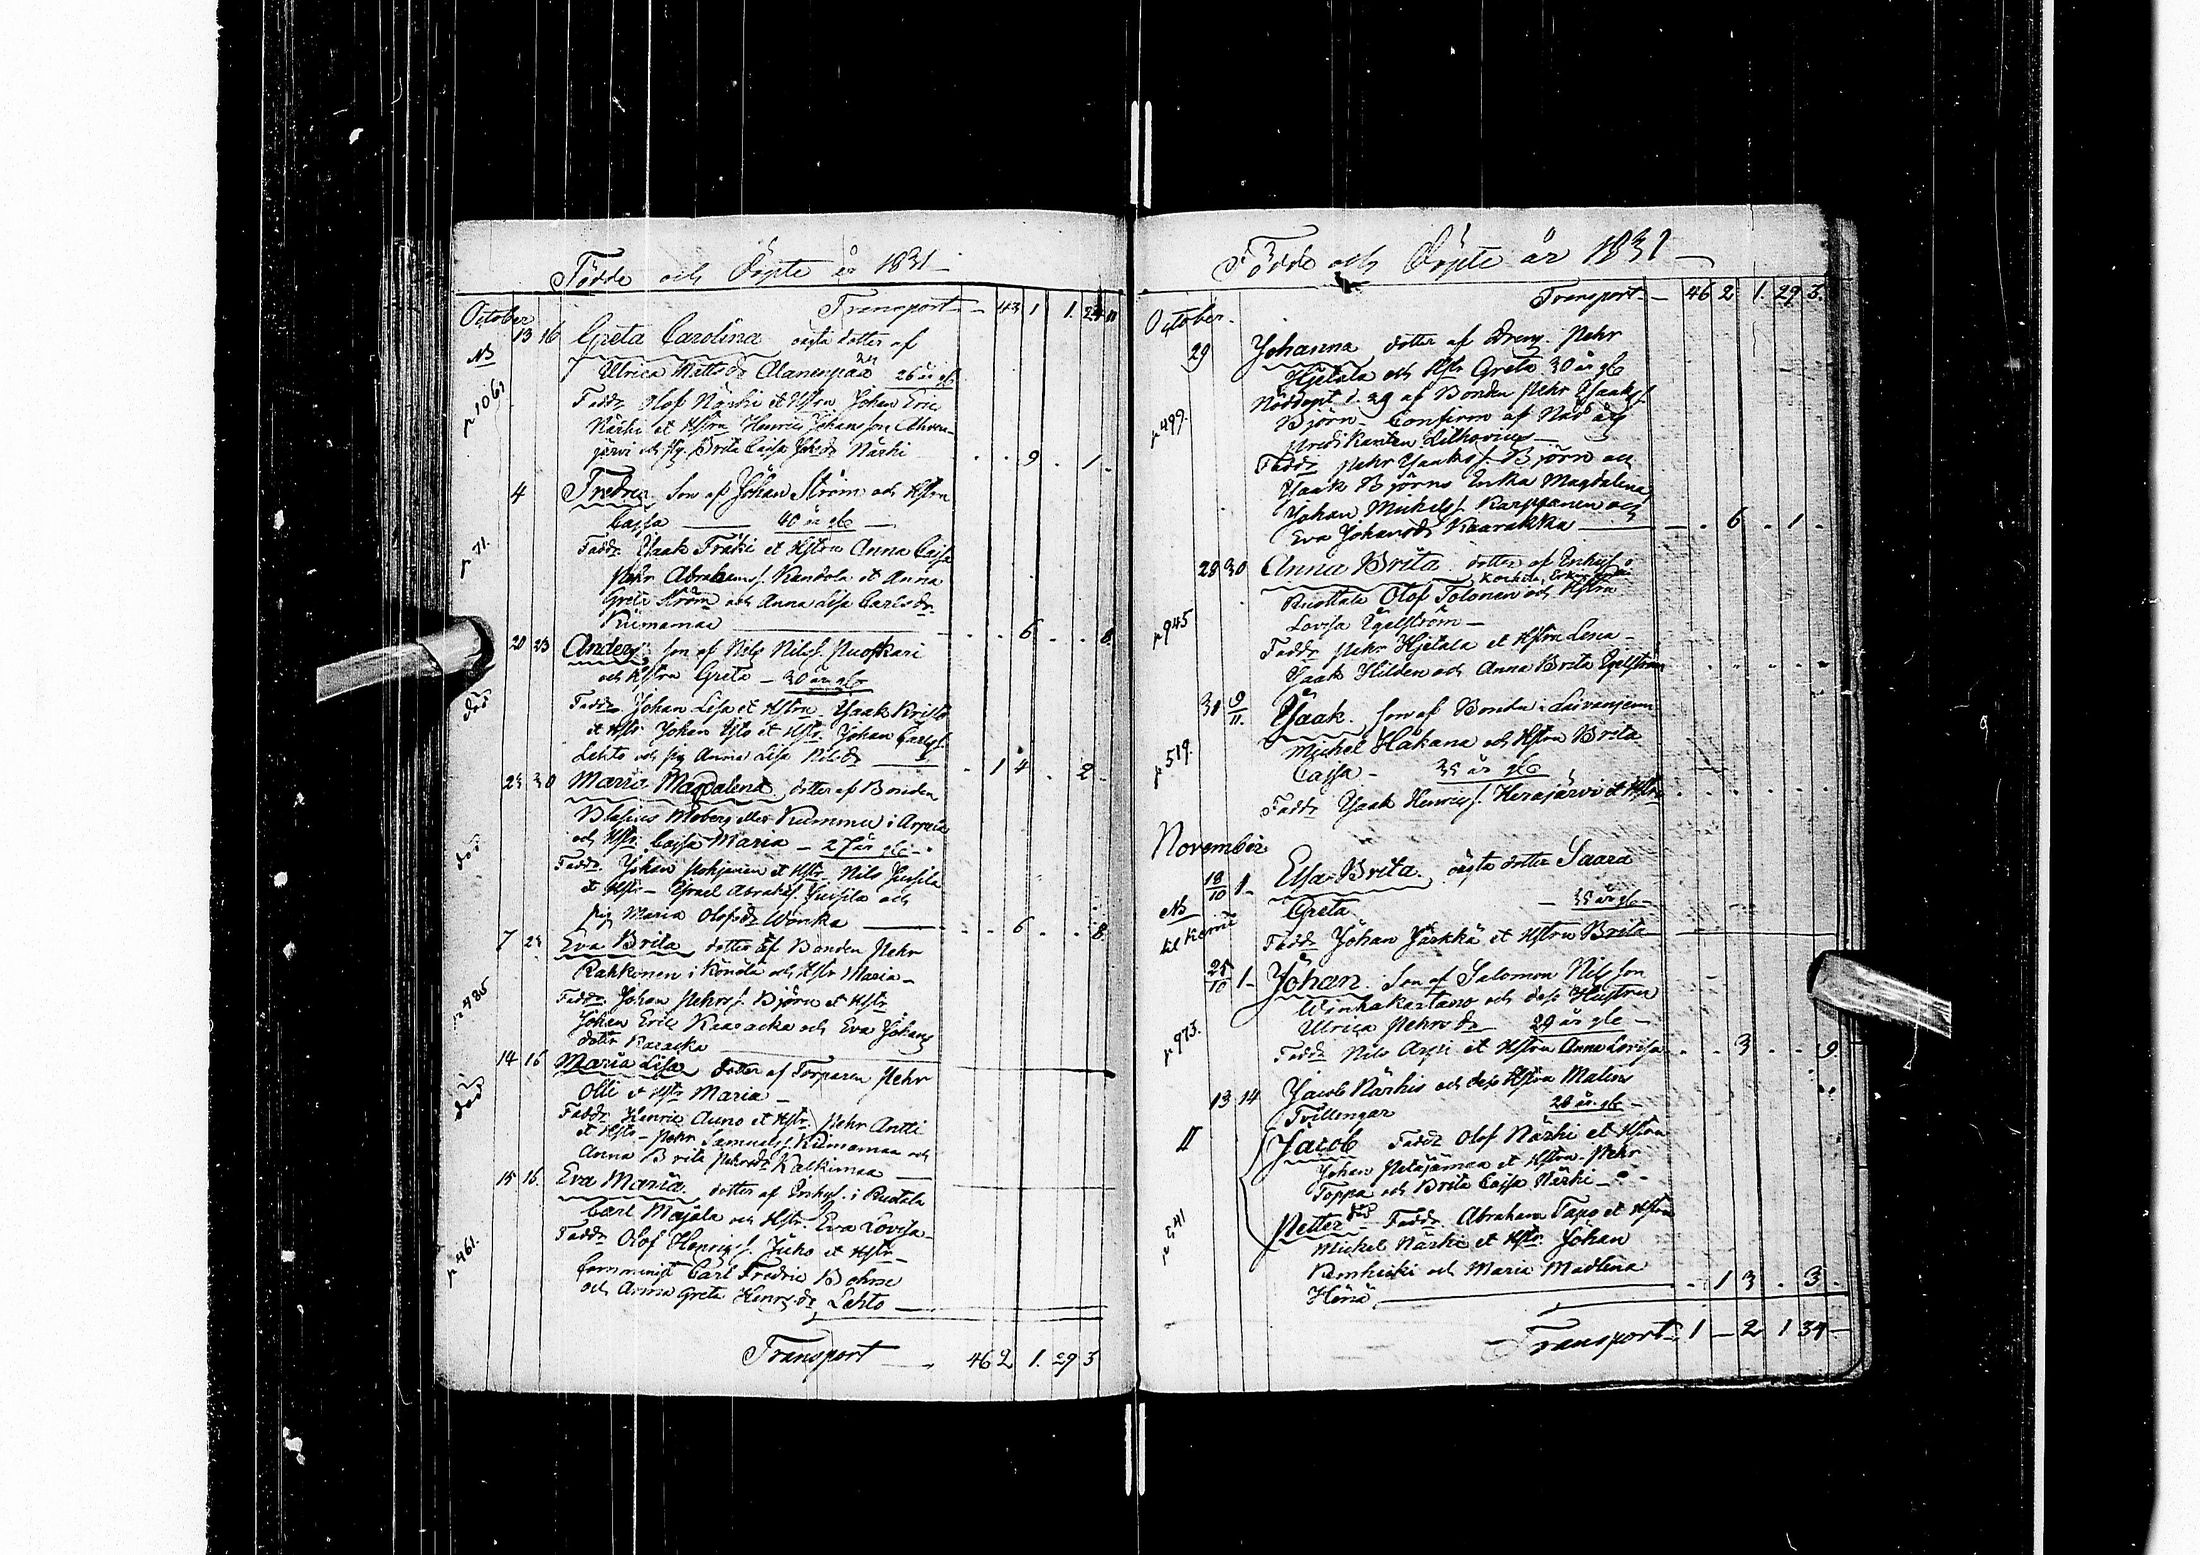 Födde och Döpte år 1831
Transport 43 1 1. 24 11
October
13 16 Greta Carolina oägta dotter af
NB
Ulrica Mattsdr Alanenpää 26 år gl.
p 1061
Faddr. Olof Närhi et Hstru Johan Eric
Närhi et Hstru Henric Johansson Ahven-
järvi och pig. Brita Cajsa Johsdr Närhi 9 1
4 Fredric Son af Johan Ström och Hstru
Cajsa 40 år gl.
p 71.
Faddr. Isaak Fräki et Hstru Anna Cajsa
Pehr Abrahams. Kandola et Anna
Greta Ström och Anna Lisa Carlsdr
Kiimamaa 6 8
20 23 Anders son af Nils Nilss. Ruoskari
och Hstru Greta 30 år gl.
död
Faddr Johan Lisa et Hstru Isaak Kristo
et Hstr. Johan Ylto et Hstr. Johan Carls.
Lehto och pig Anna Lisa Nilsdr 1 4 2
23 30 Maria Magdalena dotter af Bonden
Blasius Moberg eller Kumma i Arpela
och Hstr Cajsa Maria 27 år gl.
död
Faddr. Johan Pohjanen et Hstr Nils Jussila
et Hstr Israel Abrahs. Jussila och
pig Maria Olofsdr Wonka 6 8
7 23 Eva Brita dotter af Bonden Pehr
Rahkonen i Könölä och Hstr Maria
p 485
Faddr. Johan Pehrss. Björn et Hstr
Johan Eric Kaaracka och Eva Johans
dotter Karacka
14 16 Maria Lisa dotter af Torparen Pehr
Olli et Hstr Maria
död
Faddr Henric Auno et Hstr Pehr Antti
et Hstr Pehr Samuels. Kiimamaa och
Anna Brita Pehrsdr Kalkimaa
15 16. Eva Maria dotter af Inhys. i Ruotala
Carl Majala och Hstr. Eva Lovisa
p 461.
Faddr Olof Henrics. Juho et Hstr
Carl Fredric Bohm
och Anna Greta Henrsdr Lehto
Transport 46 2 1. 29 3
Födde och Döpte år 1831
Transport 46 2 1. 29 3.
October
29 Johanna dotter af Dreng. Pehr
Hjetala och Hstr Greta 30 år gl
Nöddöpt d. 29 af Bonden Pehr Isaaks.
p 499.
Björn Confirm af Nåd. års
predikanten Lithovius
Faddr Pehr Isaaks. Björn
Isaak Björns Erika Magdalena
Johan Michels. Karppanen och
Eva Johansdr Kaarakka 6 1
28 30 Anna Brita dotter af Inhys. i
Ruottala Olof Tolonen och Hstru
p 945
Lovisa Egelström
Faddr Pehr Hjetala et Hstru Lena
Isaak Hilden och Anna Brita Egelström
31 9/11. Isaak son af Bonden i Laivaniemi
Michel Hakana och Hstru Brita
p 519.
Cajsa 35 år gl
Faddr Isaak Henrics. Herajärvi et Hstru
November
18/10 1 Elsa Brita oägta dotter Saara
NB
Greta 35 år gl
til Kemi
Faddr Johan Järkkä et Hstru Brita
25/10 1 Johan Son af Salomon Nilsson
Winhakartano och dess Hustru
p 973.
Ulrica Pehrsdr 29 år gl
Faddr Nils Arpi et Hstru Anna Lovisa 3 9
13 14 Jacob Närhis och dess Hstru Malins
Tvillingar 28 år gl
II
Jacob Faddr Olof Närhi et Hstru
Johan Petäjämaa et Hstru Pehr
Toppa och Brita Cajsa Närhi
Petter död Faddr. Abraham Tapo et Hstru
Michel Närhi et Hstr Johan
och Maria Madlena
1 3 3
Transport 1 2 1 34